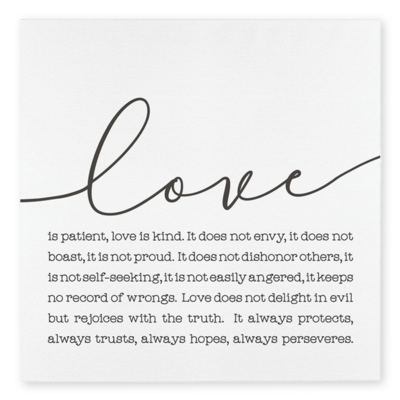 love
is patient, love is kind. It does not envy, it does not
boast, it is not proud. It does not dishonor others, it
is not self-seeking, it is not easily angered, it keeps
no record of wrongs. Love does not delight in evil
but rejoices with the truth. It always protects,
always trusts, always hopes, always perseveres.